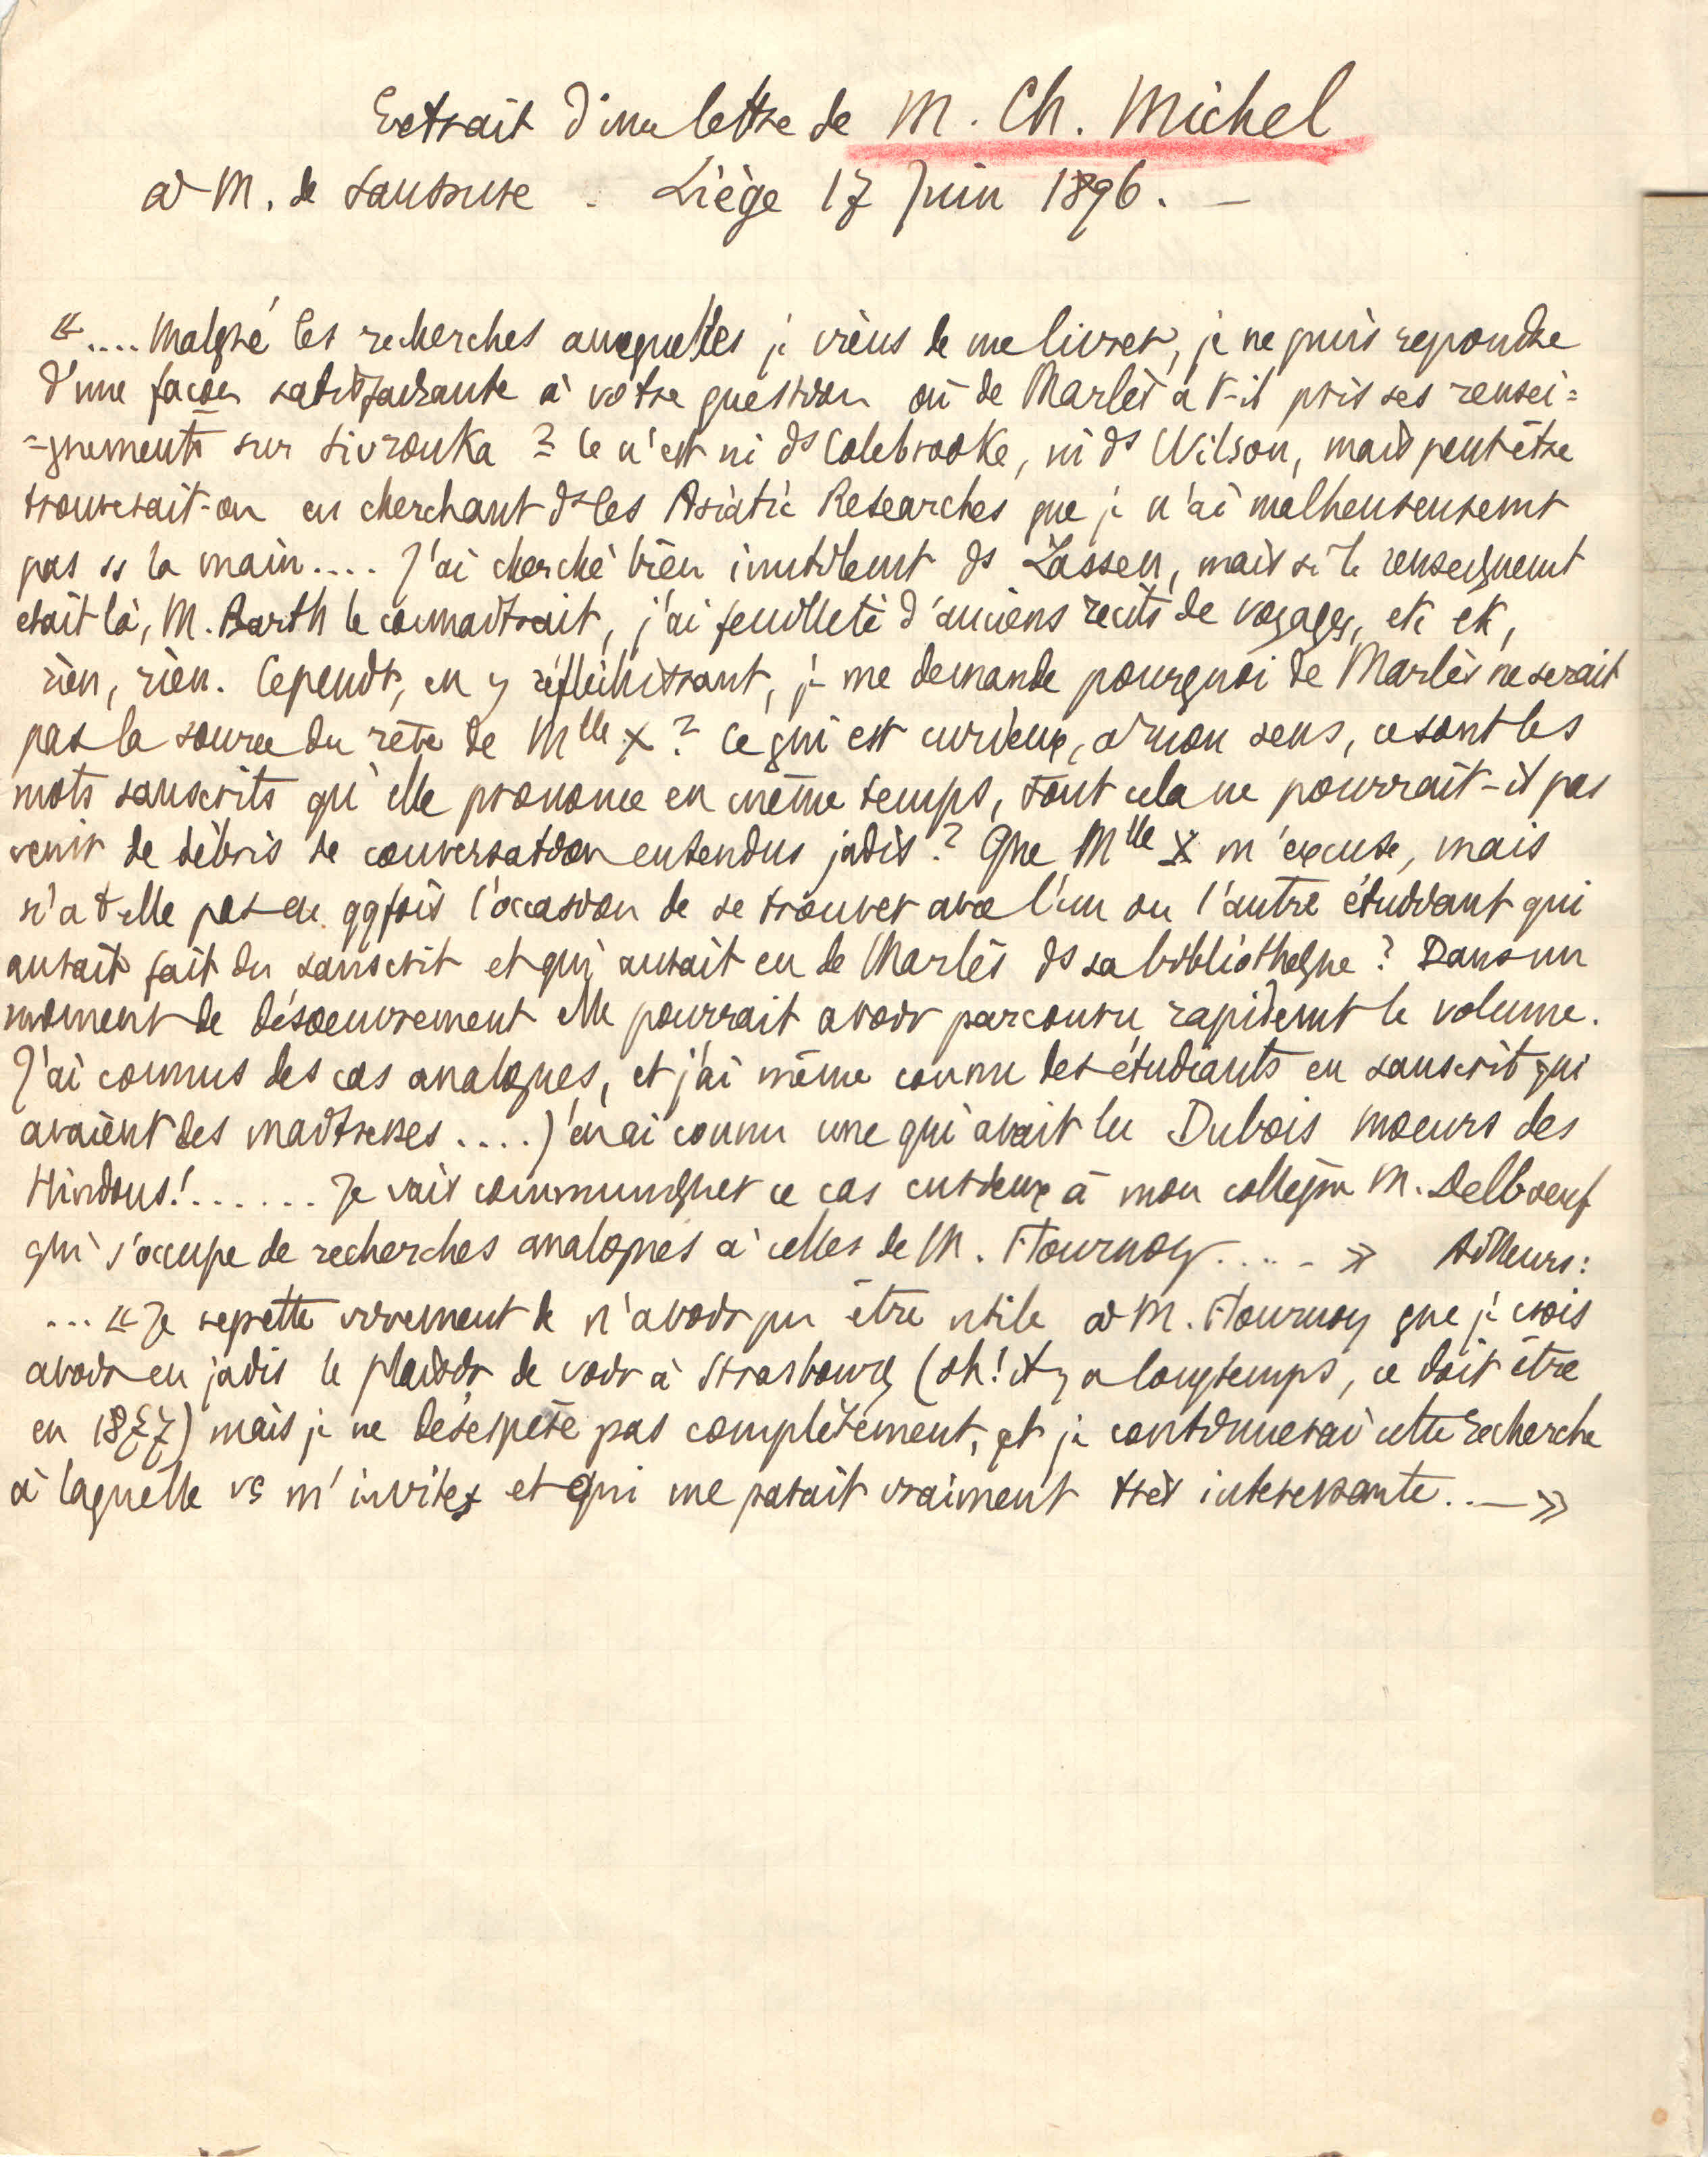 Extrait d'une lettre de M. Ch. Michel
à M. de Saussure. Liège 17 Juin 1896. —
«.... Malgré les recherches auxquelles je viens de me livrer, je ne puis repondre
d'une facon satisfaisante à votre question où de Marlès a t-il pris ses rensei=
=gnements sur Sivrouka ? Ce n'est ni ds Colebrooke, ni ds Wilson, mais peut être
trouverait-on en cherchant ds les Asiatic Researches que je n'ai malheureusemt
pas ss la main.... J'ai cherché bien inutilemt ds Lassen, mais si le renseignemt
etait là, M. Barth le connaitrait, j'ai feuilleté d'anciens recits de voyages, etc etc,
rien, rien. Cependt, en y réfléchissant, je me demande pourquoi de Marlès ne serait
pas la source du rêve de Mlle X ? Ce qui est curieux, à mon sens, ce sont les
mots sanscrits qu'elle prononce en même temps, tout cela ne pourrait-il pas
venir de débris de conversation entendus jadis ? Que Mlle X m'excuse, mais
n'a t elle pas eu qqfois l'occasion de se trouver avec l'un ou l'autre étudiant qui
aurait fait du sanscrit et qui aurait eu de Marlès ds sa bibliotheque ? Dans un
moment de désoeuvrement elle pourrait avoir parcouru rapidemt le volume.
J'ai connus des cas analogues, et j'ai même connu des étudiants en sanscrit qui
avaient des maitresses.... J'en ai connu une qui avait lu Dubois moeurs des
Hindous!...... Je vais communiquer ce cas curieux à mon collègue M. Delboeuf
qui s'occupe de recherches analogues à celles de M. Flournoy.... - » Ailleurs:
... « Je regrette vivement de n'avoir pu être utile à M. Flournoy que je crois
avoir eu jadis le plaisir de voir à Strasbourg (oh! il y a longtemps, ce doit être
en 1877) mais je ne désespère pas complètement, et je continuerai cette recherche
à laquelle vs m'invitez et qui me parait vraiment très interessante..— »